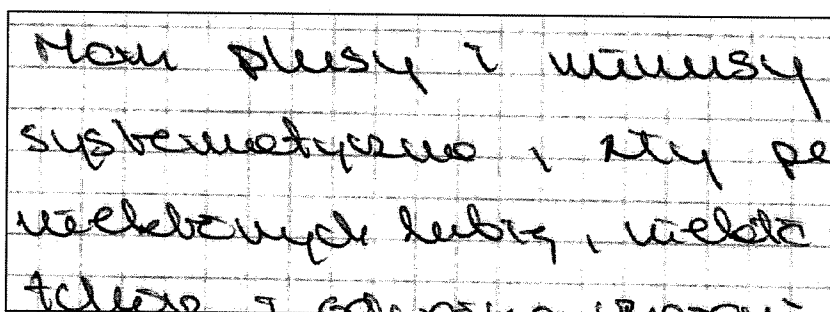 Mam plusy i minusy
systematyczna, zły pe
niektórych lubię, niektó